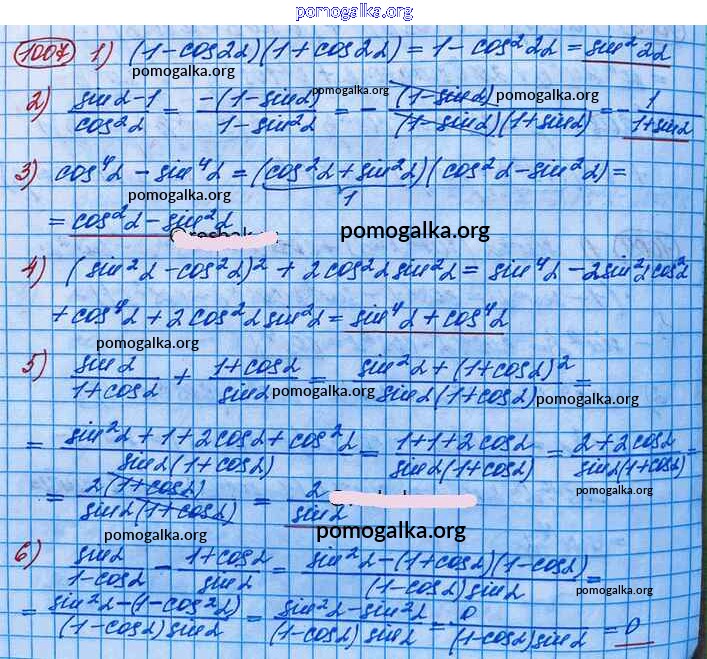 pomogalka.org
1007 1) (1-cos2α)(1+cos2α) = 1-cos²2α = sin²2α
pomogalka.org
2) (sinα-1)/cos²α = -(1-sinα)/(1-sin²α) = -(1-sinα)/((1-sinα)(1+sinα)) = -1/(1+sinα)
pomogalka.org pomogalka.org
3) cos⁴α - sin⁴α = (cos²α+sin²α)(cos²α-sin²α) =
1
pomogalka.org
= cos²α - sin²α
pomogalka.org
4) (sin²α-cos²α)² + 2cos²α sin²α = sin⁴α - 2sin²α cos²α
+ cos⁴α + 2cos²α sin²α = sin⁴α + cos⁴α
pomogalka.org
5) sinα/(1+cosα) + (1+cosα)/sinα = (sin²α+(1+cosα)²)/(sinα(1+cosα)) =
pomogalka.org pomogalka.org
= (sin²α+1+2cosα+cos²α)/(sinα(1+cosα)) = (1+1+2cosα)/(sinα(1+cosα)) = (2+2cosα)/(sinα(1+cosα)) =
pomogalka.org
= 2(1+cosα)/(sinα(1+cosα)) = 2/sinα
pomogalka.org
6) sinα/(1-cosα) - (1+cosα)/sinα = (sin²α-(1+cosα)(1-cosα))/((1-cosα)sinα) =
pomogalka.org pomogalka.org
= (sin²α-(1-cos²α))/((1-cosα)sinα) = (sin²α-sin²α)/((1-cosα)sinα) = 0/((1-cosα)sinα) = 0